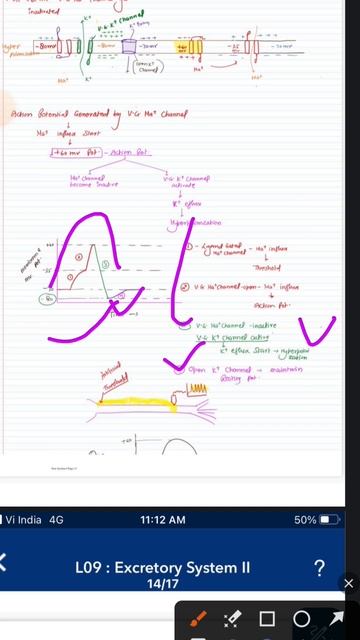 inactivated
K+
V.G K+ channel
Hyper
polarisation
-80mV
-80mV
-70mV
+60
mV
-55
mV
-70mV
Na+
K+
(open K+
Channel)
Na+
Na+
Action Potential Generated by V.G Na+ Channel
Na+ influx Start
+60 mv Pot. - Action Pot.
Na+ channel
become Inactive
V.G K+ Channel
activate
K+ efflux
Hyperpolarization
① - Ligand Gated Na+ influx
Na+ channel
Threshold
② V.G Na+ Channel-open - Na+ influx
Action Pot.
V.G Na+ Channel - inactive
V.G K+ Channel active
K+ efflux Start → Hyperpolarization
Open K+ Channel → maintain
Resting pot.
+60
-55
Threshold
+60
Vi India 4G
11:12 AM
50%
L09 : Excretory System II
14/17
?